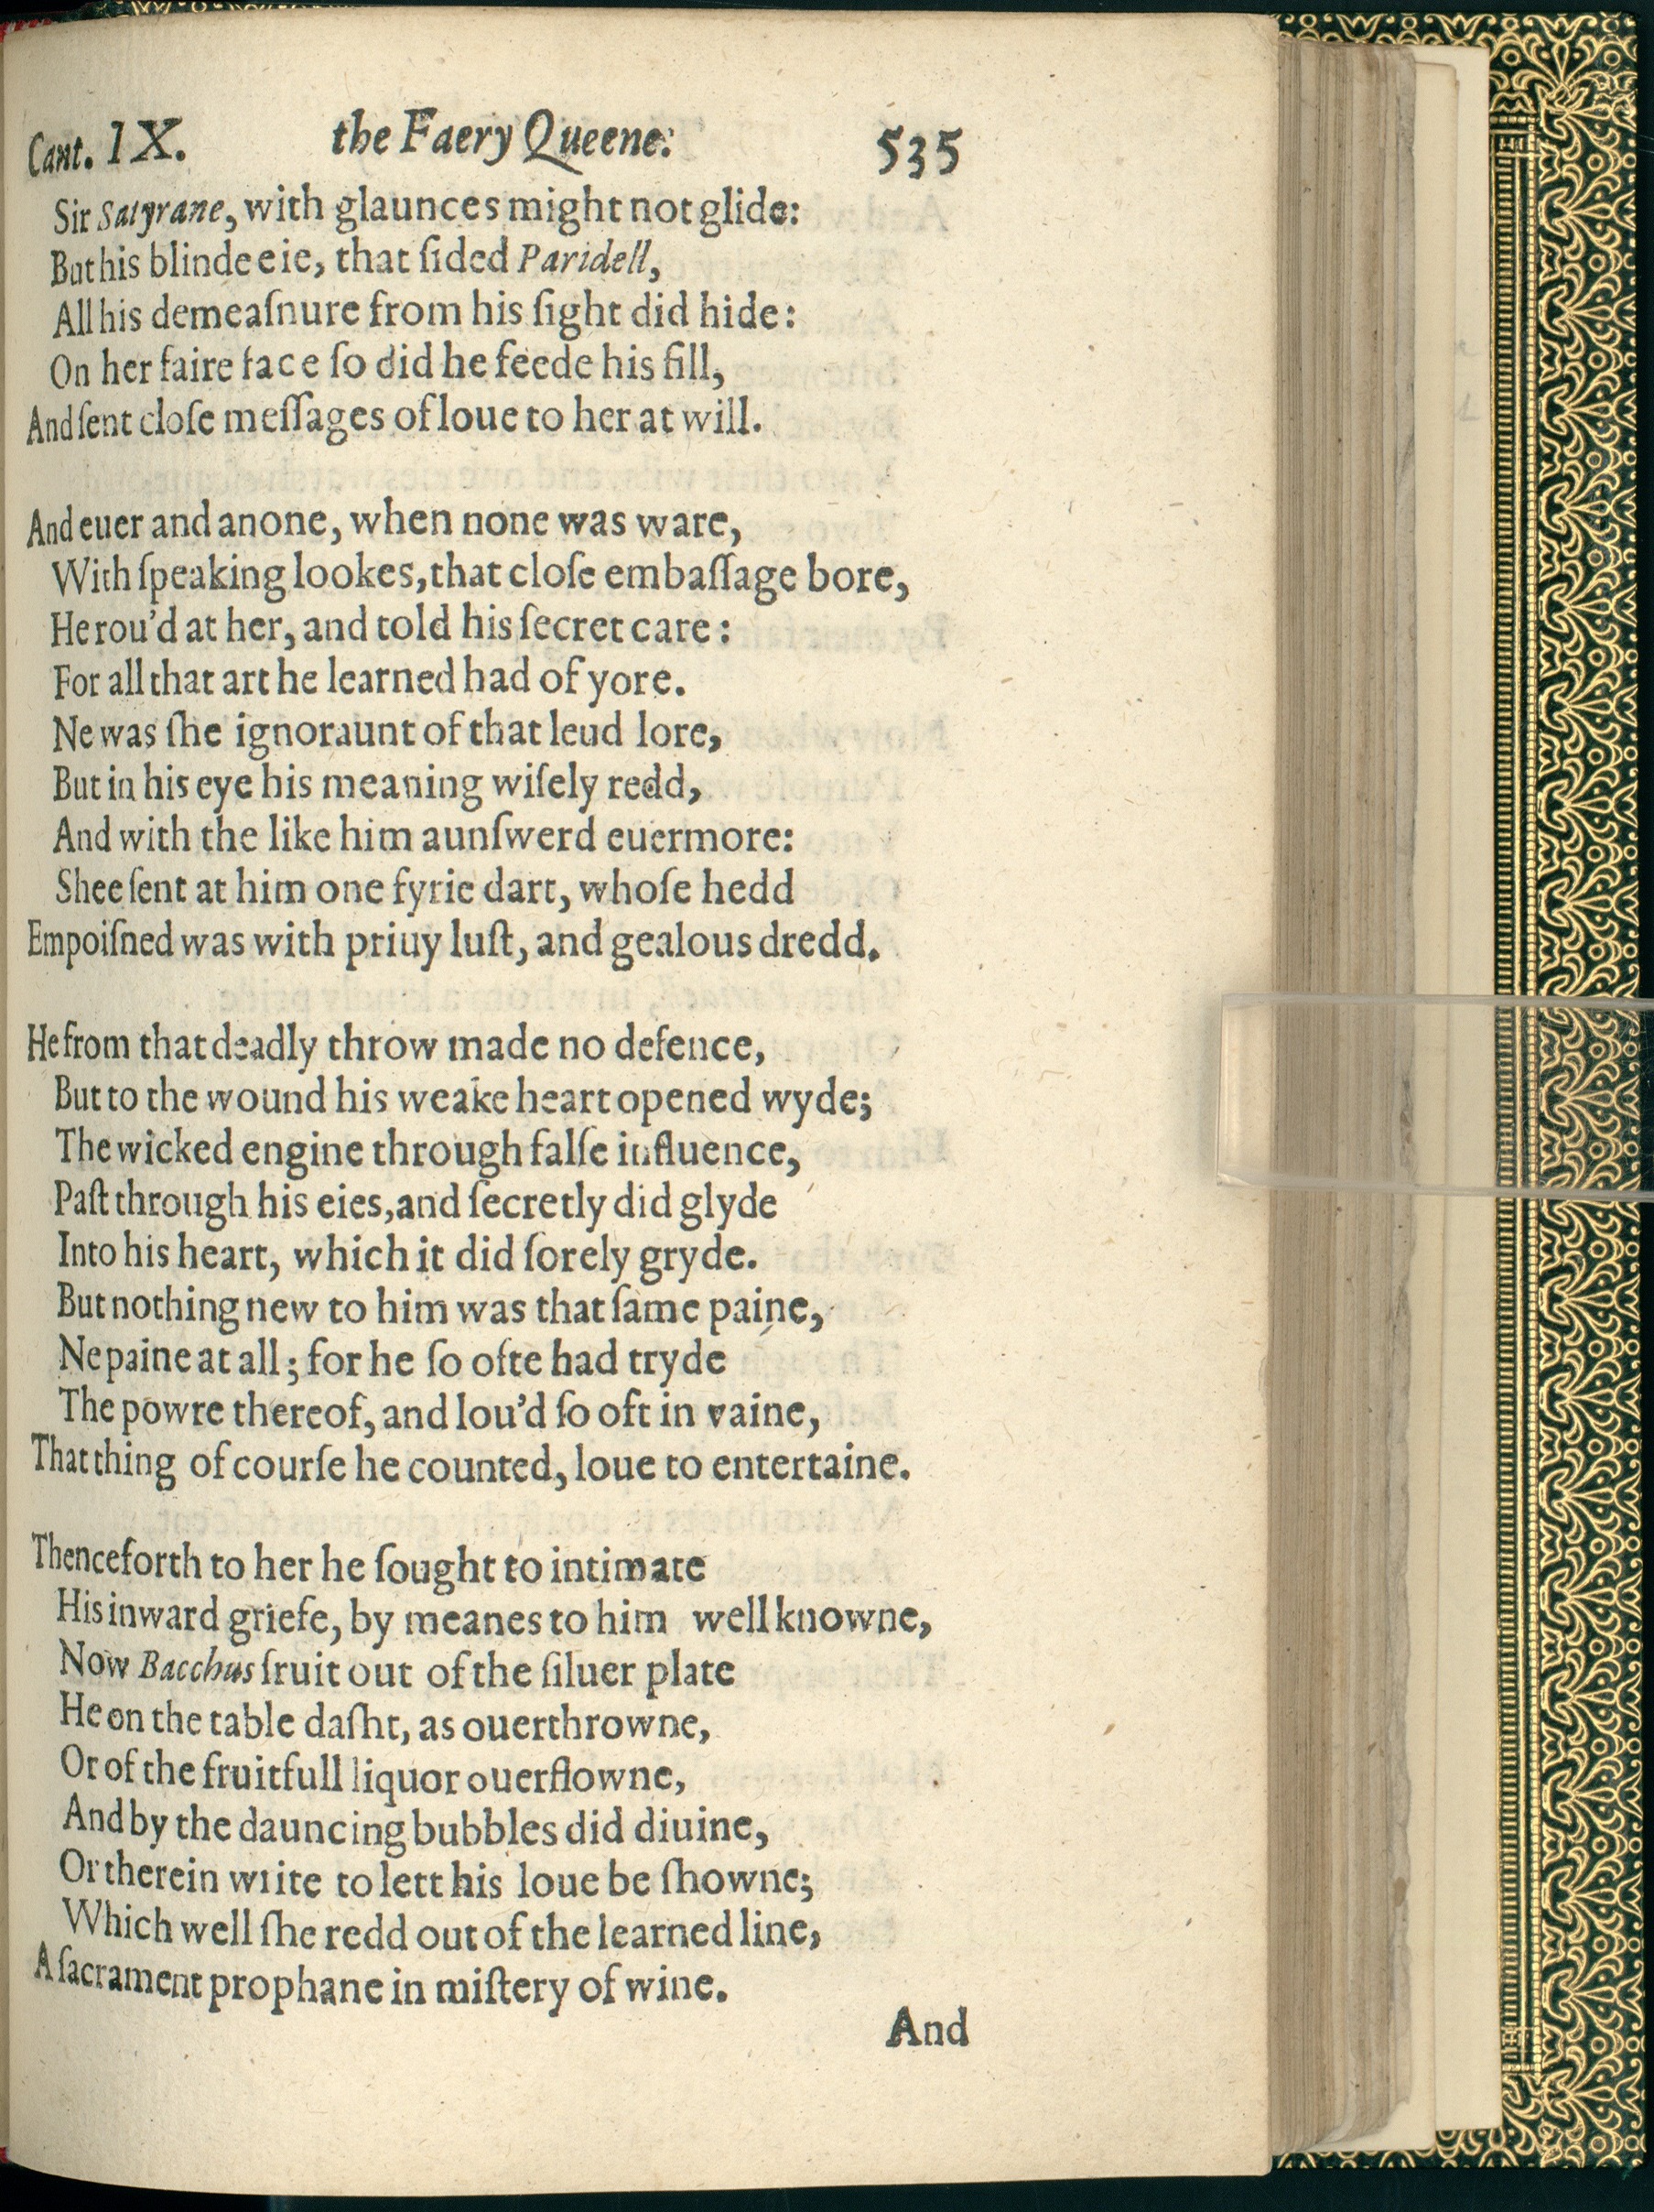 Cant. IX. the Faery Queene. 535
Sir Satyrane, with glaunces might not glide:
But his blinde eie, that ſided Paridell,
All his demeaſnure from his ſight did hide:
On her faire face ſo did he feede his fill,
And ſent cloſe meſſages of loue to her at will.
And euer and anone, when none was ware,
With ſpeaking lookes, that cloſe embaſſage bore,
He rou'd at her, and told his ſecret care:
For all that art he learned had of yore.
Ne was ſhe ignoraunt of that leud lore,
But in his eye his meaning wiſely redd,
And with the like him aunſwerd euermore:
Shee ſent at him one fyrie dart, whoſe hedd
Empoiſned was with priuy luſt, and gealous dredd.
He from that deadly throw made no defence,
But to the wound his weake heart opened wyde;
The wicked engine through falſe influence,
Paſt through his eies, and ſecretly did glyde
Into his heart, which it did ſorely gryde.
But nothing new to him was that ſame paine,
Ne paine at all; for he ſo ofte had tryde
The powre thereof, and lou'd ſo oft in vaine,
That thing of courſe he counted, loue to entertaine.
Thenceforth to her he ſought to intimate
His inward griefe, by meanes to him well knowne,
Now Bacchus fruit out of the ſiluer plate
He on the table daſht, as ouerthrowne,
Or of the fruitfull liquor ouerflowne,
And by the dauncing bubbles did diuine,
Or therein write to lett his loue be ſhowne;
Which well ſhe redd out of the learned line,
A ſacrament prophane in miſtery of wine.
And